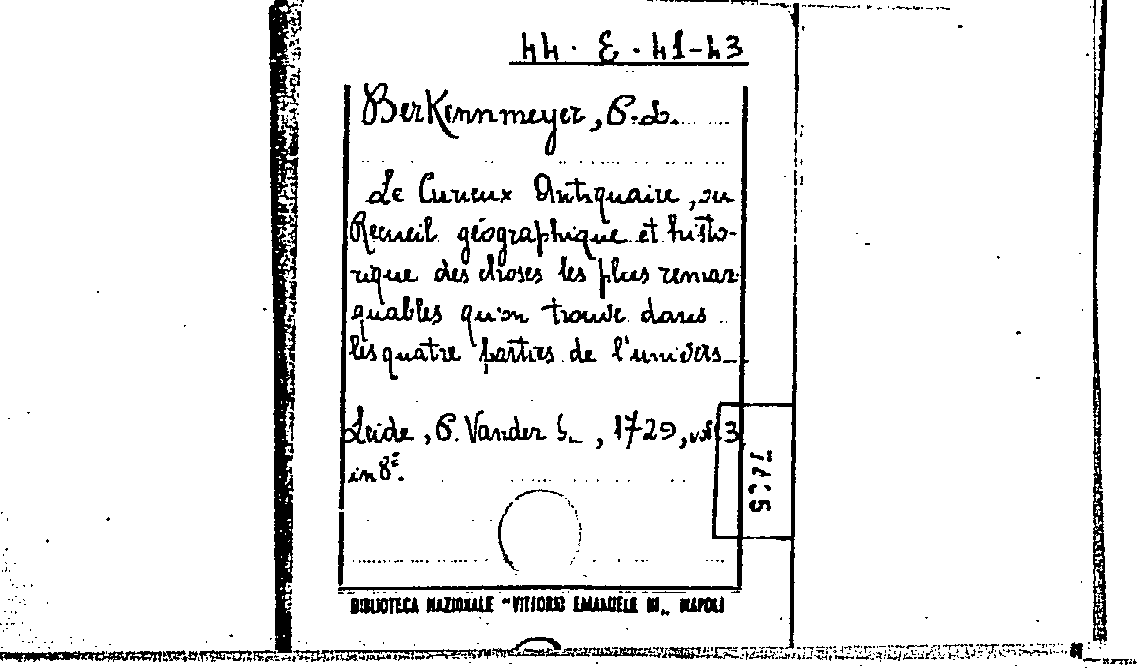 44. E. 41-43
Berkenmeyer, P. L.
Le Curieux Antiquaire, ou
Recueil géographique et histo-
rique des choses les plus remar
quables qu'on trouve dans
les quatre parties de l'univers_
Leide, P. Vander _, 1729, vol 3
in 8º.
BIBLIOTECA NAZIONALE "VITTORIO EMANUELE III„ NAPOLI